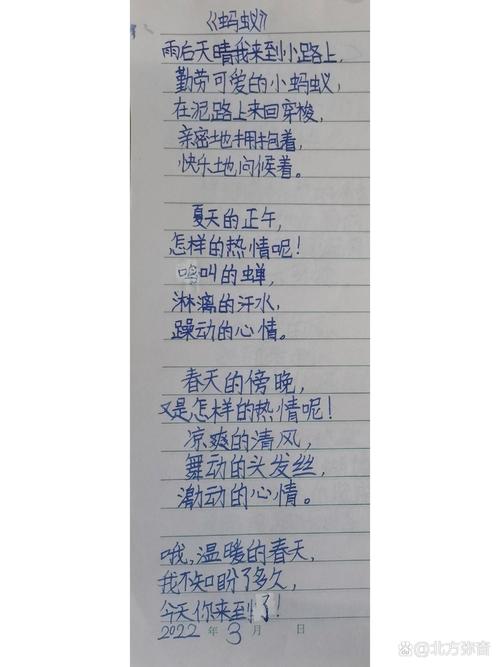 《蚂蚁》
雨后天晴我来到小路上，
勤劳可爱的小蚂蚁，
在泥路上来回穿梭，
亲密地拥抱着，
快乐地问候着。
夏天的正午，
怎样的热情呢！
鸣叫的蝉，
淋漓的汗水，
躁动的心情。
春天的傍晚，
又是怎样的热情呢！
凉爽的清风，
舞动的头发丝，
激动的心情。
哦，温暖的春天，
我不知盼了多久，
今天你来到了！
2022年3月 日
北方弥音